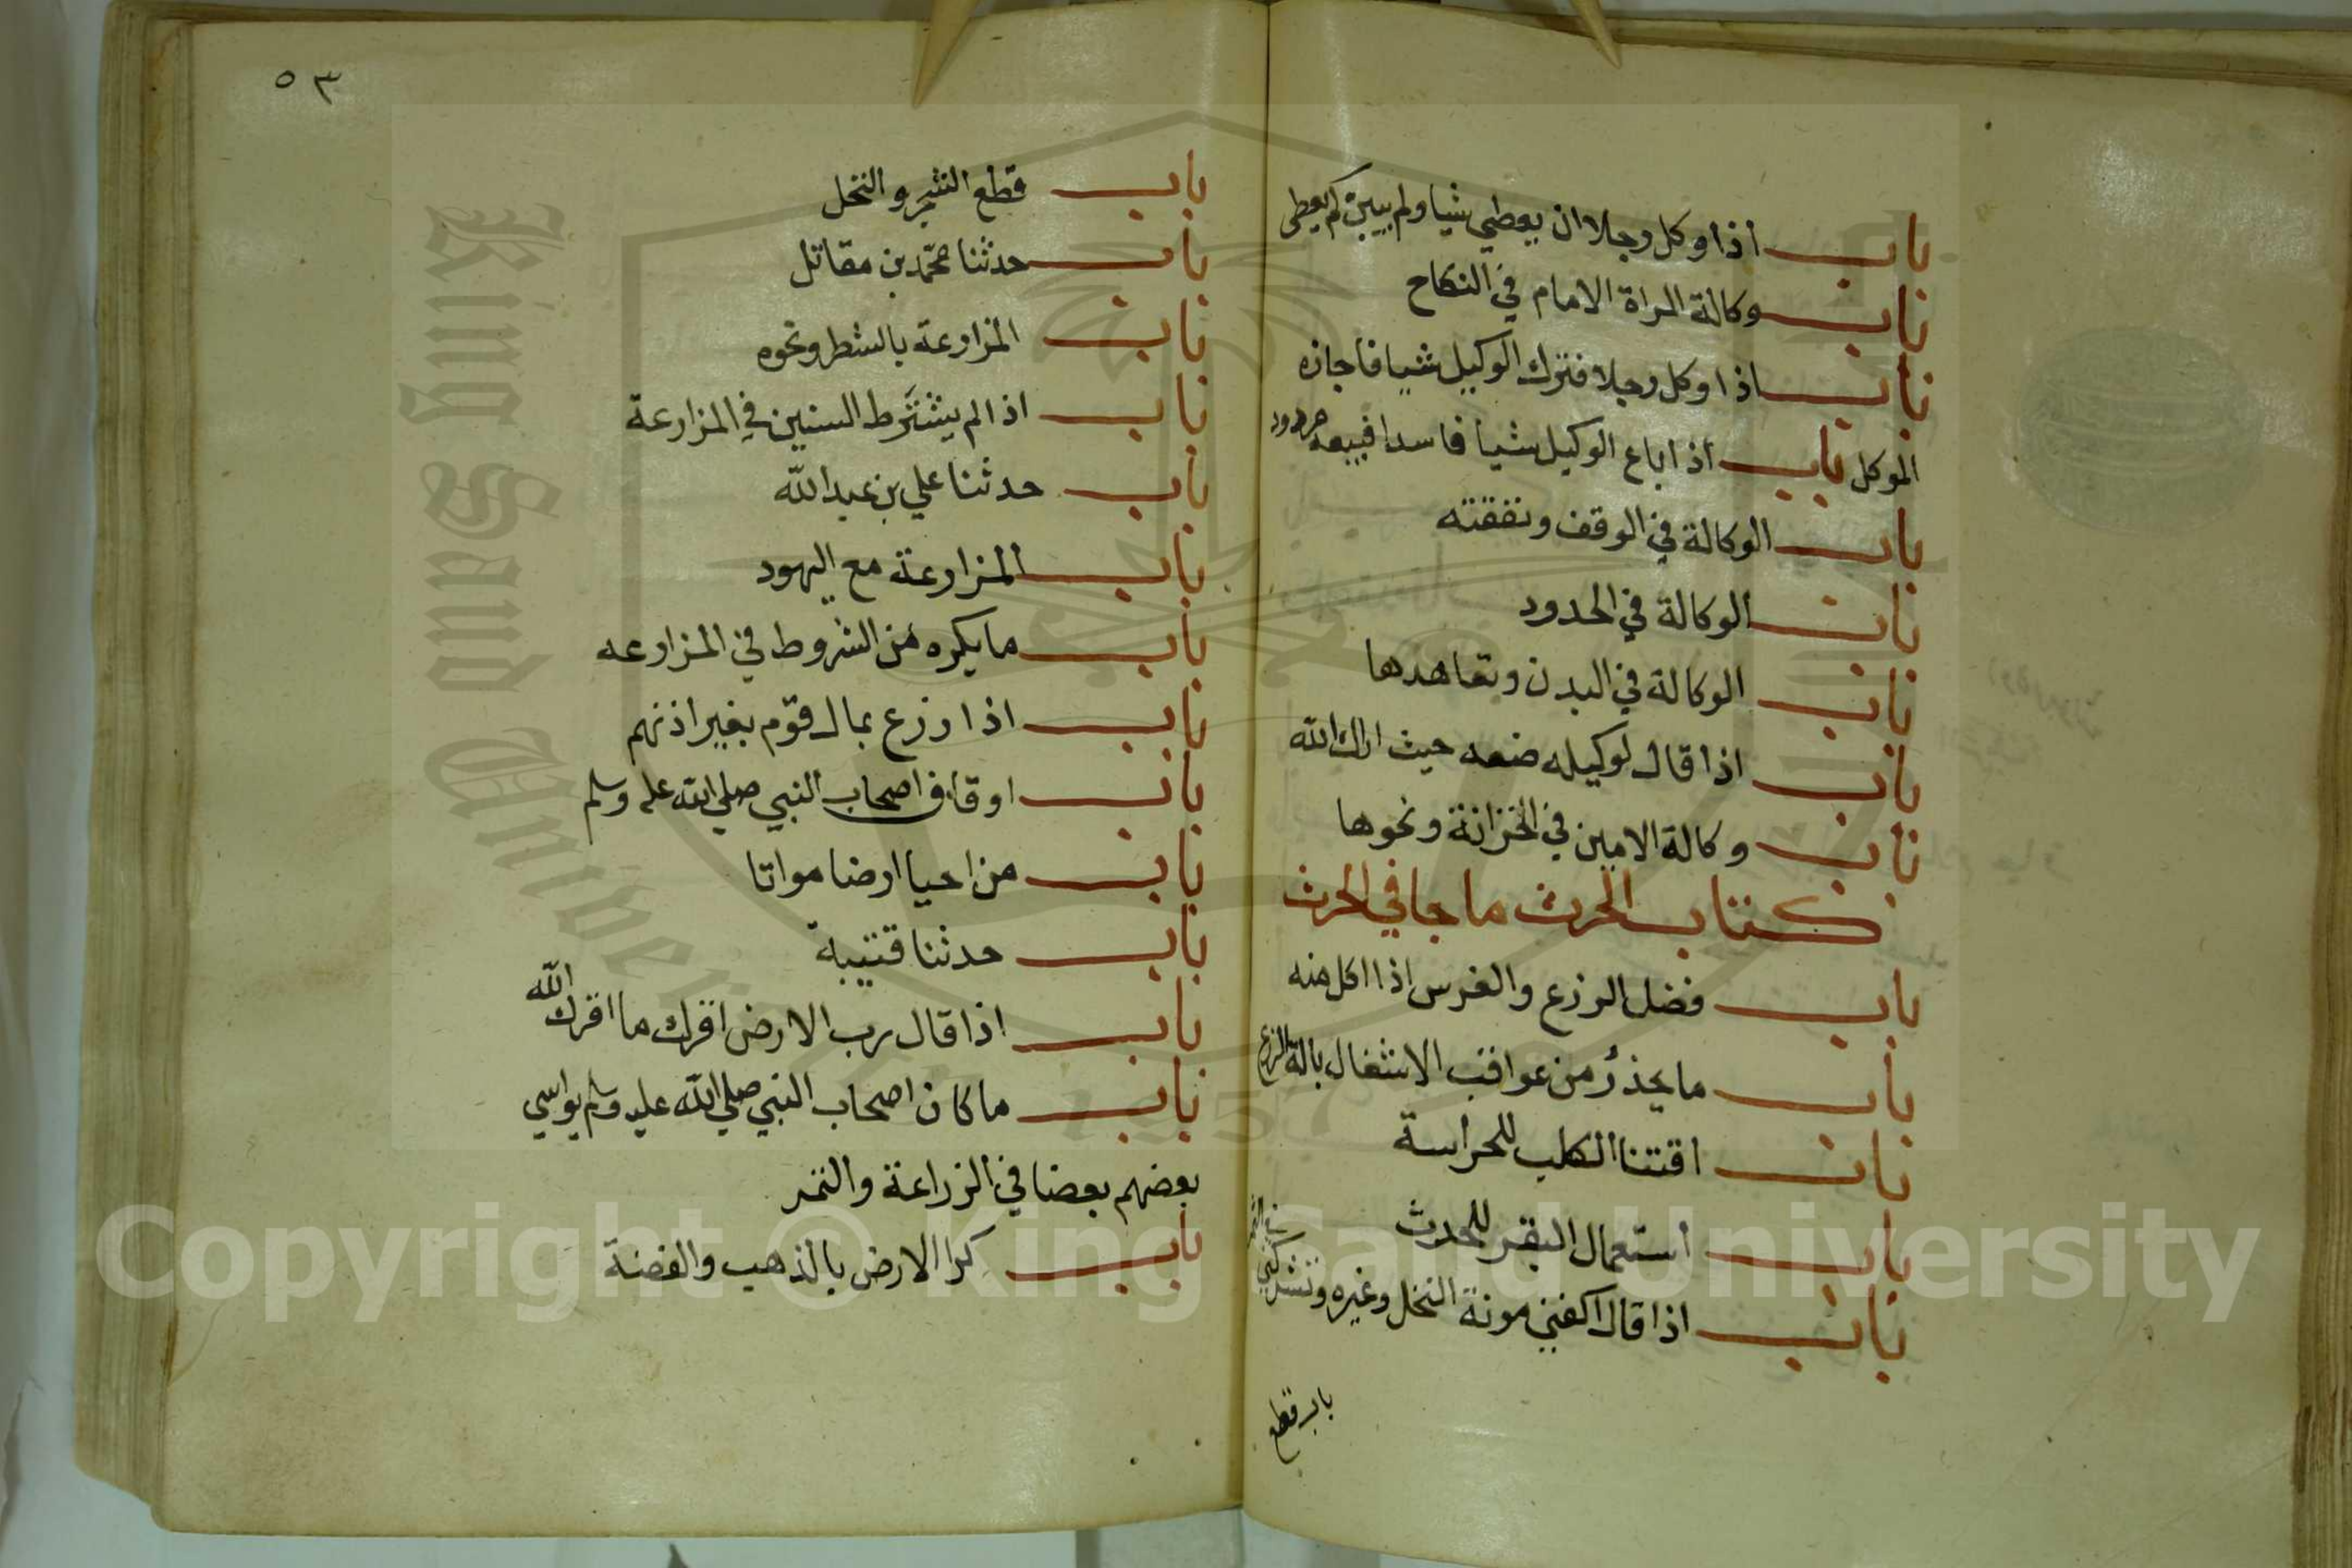 باب اذا وكل رجلا ان يعطي شيا ولم يبين كم يعطي
باب وكالة المراة الامام في النكاح
باب اذا وكل رجلا فترك الوكيل شيا فاجازه
الموكل باب اذا باع الوكيل شيا فاسدا فبيعه مردود
باب الوكالة في الوقف ونفقته
باب الوكالة في الحدود
باب الوكالة في البدن وتعاهدها
باب اذا قال لوكيله ضعه حيث اراك الله
باب وكالة الامين في الخزانة ونحوها
كتاب الحرث ما جا في الحرث
باب فضل الزرع والغرس اذا اكل منه
باب ما يحذر من عواقب الاشتغال بالة الزرع
باب اقتنا الكلب للحراسة
باب استعمال البقر للحرث
باب اذا قال اكفني مونة النخل وغيره وتشركني في الثمر
باب قطع
٥٣
باب قطع الشجر والنخل
باب حدثنا محمد بن مقاتل
باب المزارعة بالشطر ونحوه
باب اذا لم يشترط السنين في المزارعة
باب حدثنا علي بن عبد الله
باب المزارعة مع اليهود
باب ما يكره من الشروط في المزارعه
باب اذا زرع بمال قوم بغير اذنهم
باب اوقاف اصحاب النبي صلي الله عليه وسلم
باب من احيا ارضا مواتا
باب حدثنا قتيبة
باب اذا قال رب الارض اقرك ما اقرك الله
باب ما كان اصحاب النبي صلي الله عليه وسلم يواسي
بعضهم بعضا في الزراعة والثمر
باب كرا الارض بالذهب والفضة
King Saud University
1957
Copyright © King Saud University